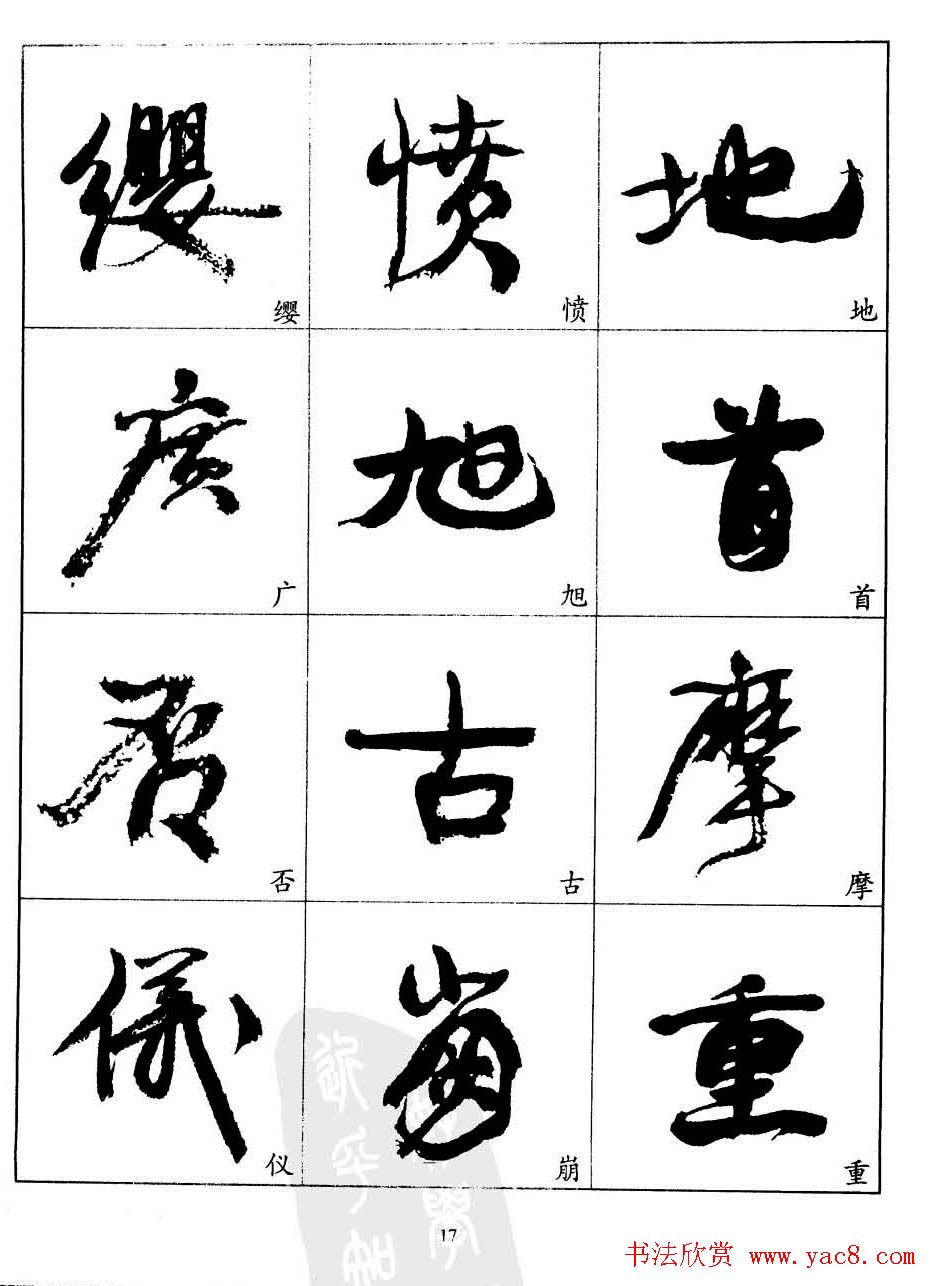 缨 愤 地
缨 愤 地
廣 旭 首
广 旭 首
否 古 摩
否 古 摩
儀 崩 重
仪 崩 重
17
书法欣赏 www.yac8.com